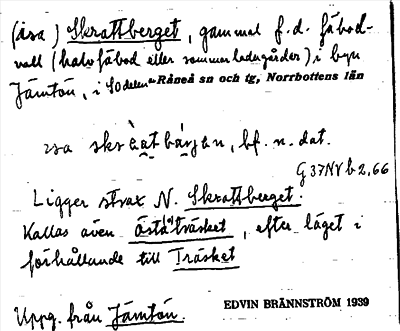 (isa) Skrattberget, gammal f.d. fäbod-
vall (halvfäbod eller sommarladugårdar) i byn
Jämtön, i Södelen Råneå sn och tg, Norrbottens län
isa skràtbǽrjən, bf. n. dat.
G 37NV b 2,66
Ligger strax N. Skrattberget.
Kallas även östa träsket, efter läget i
förhållande till Träsket
Uppg. från Jämtön.
EDVIN BRÄNNSTRÖM 1939